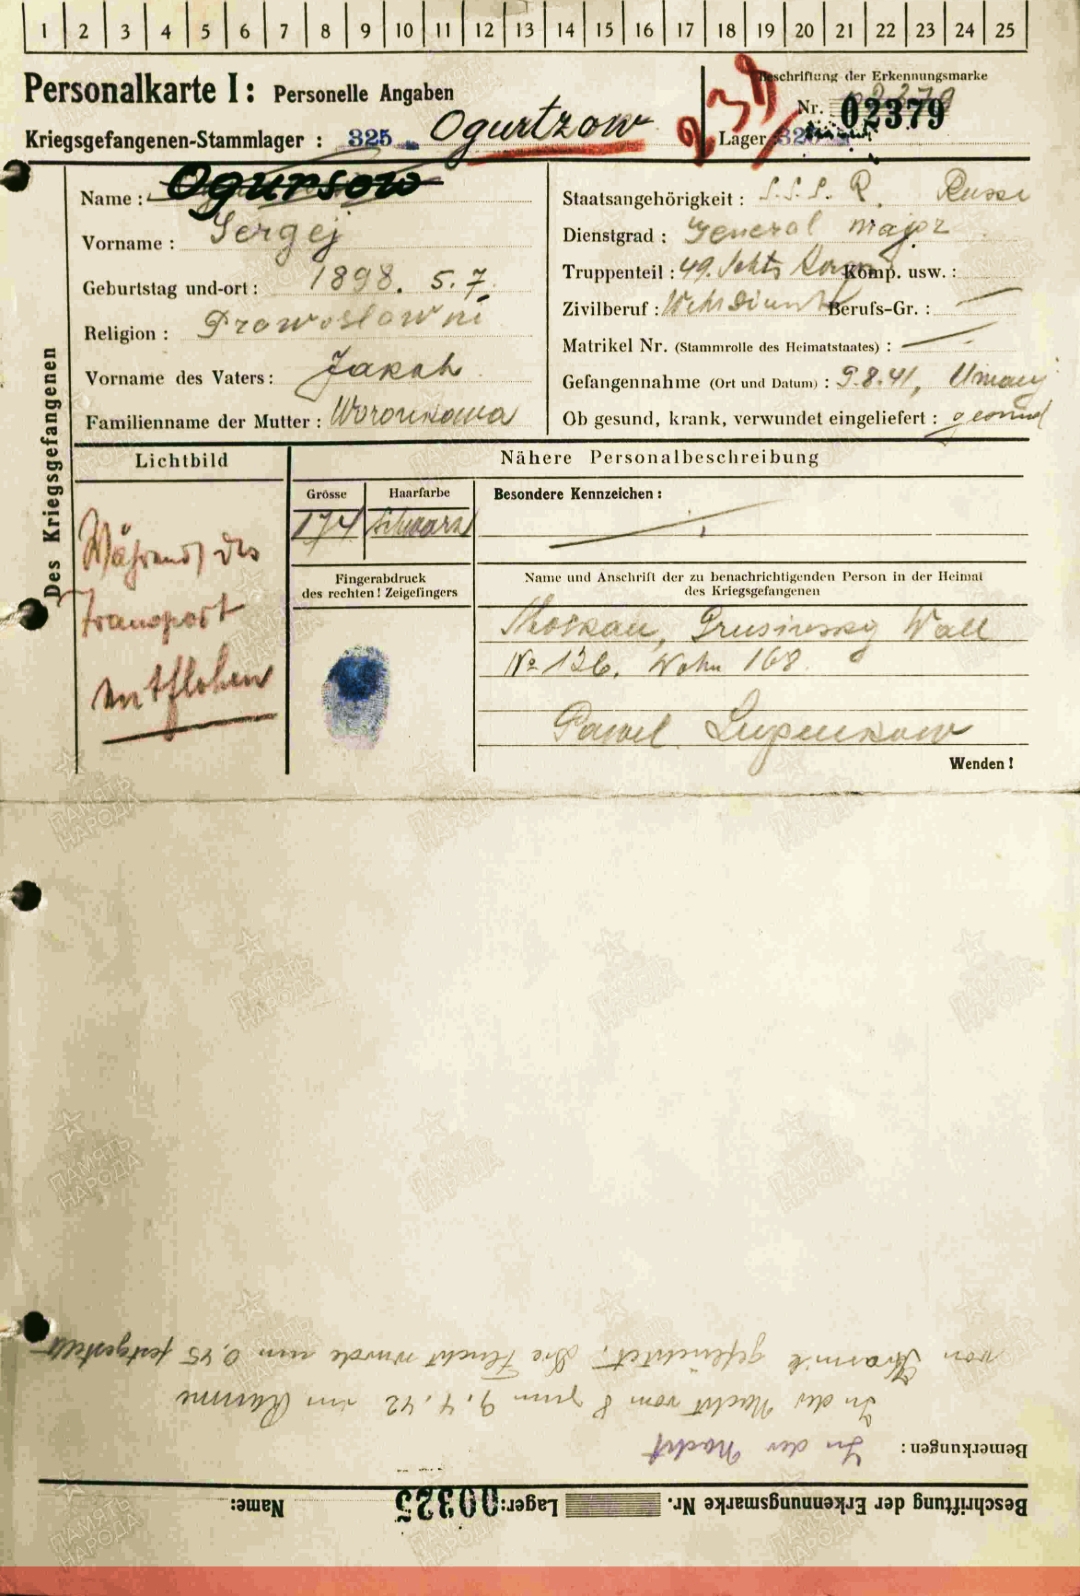 1 2 3 4 5 6 7 8 9 10 11 12 13 14 15 16 17 18 19 20 21 22 23 24 25
Personalkarte I: Personelle Angaben
Beschriftung der Erkennungsmarke
Nr. 02379
Kriegsgefangenen-Stammlager : 325 Ogurtzow
Lager : 325
Des Kriegsgefangenen
Name : Ogursow
Vorname : Sergej
Geburtstag und-ort : 1898. 5.7.
Religion : Prawoslawni
Vorname des Vaters : Jakob
Familienname der Mutter : Woronkowa
Staatsangehörigkeit : S.S.S.R. Russe
Dienstgrad : General major
Truppenteil : 49. Schts. Korps Komp. usw. :
Zivilberuf : Berufs-Gr. : —
Matrikel Nr. (Stammrolle des Heimatstaates) : —
Gefangennahme (Ort und Datum) : 9.8.41, Umanj
Ob gesund, krank, verwundet eingeliefert : gesund
Lichtbild
Während des
Transport
entflohen
Nähere Personalbeschreibung
Grösse
174
Haarfarbe
schwarz
Besondere Kennzeichen :
Fingerabdruck
des rechten ! Zeigefingers
Name und Anschrift der zu benachrichtigenden Person in der Heimat
des Kriegsgefangenen
Moskau, Grusinsky Wall
№ 126. Wohn 168.
Pawel Lupenkow
Wenden !
Beschriftung der Erkennungsmarke Nr. Lager: 00325 Name:
Bemerkungen : In der Nacht
In der Nacht vom 8 zum 9.4.42 im Raume
von geflüchtet. Die Flucht wurde um 0,45 festgestellt
ПАМЯТЬ НАРОДА